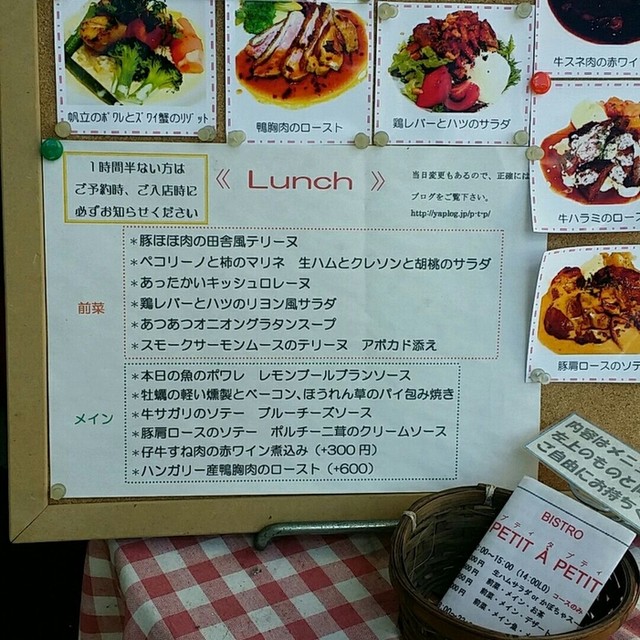 帆立のﾎﾟﾜﾚとｽﾞﾜｲ蟹のﾘｿﾞｯﾄ
鴨胸肉のロースト
鶏レバーとハツのサラダ
牛スネ肉の赤ワイ
牛ハラミのロース
豚肩ロースのソテ
１時間半ない方は
ご予約時、ご入店時に
必ずお知らせください
《 Lunch 》
当日変更もあるので、正確には
ブログをご覧下さい。
http://yaplog.jp/p-t-p/
前菜
＊豚ほほ肉の田舎風テリーヌ
＊ペコリーノと柿のマリネ　生ハムとクレソンと胡桃のサラダ
＊あったかいキッシュロレーヌ
＊鶏レバーとハツのリヨン風サラダ
＊あつあつオニオングラタンスープ
＊スモークサーモンムースのテリーヌ　アボカド添え
メイン
＊本日の魚のポワレ　レモンブールブランソース
＊牡蠣の軽い燻製とベーコン、ほうれん草のパイ包み焼き
＊牛サガリのソテー　ブルーチーズソース
＊豚肩ロースのソテー　ポルチーニ茸のクリームソース
＊仔牛すね肉の赤ワイン煮込み（+300円）
＊ハンガリー産鴨胸肉のロースト（+600）
内容はメニ
左上のものと
ご自由にお持ち
BISTRO
プティ タ プティ
PETIT À PETIT
:00～15:00（14:00LO）
コースのみ
生ハムサラダorかぼちゃス
前菜・メイン・お茶
前菜・メイン・デザー
前菜・メイン